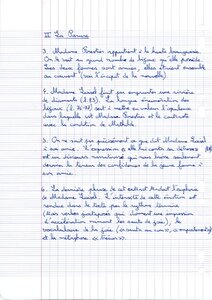 II La Parure
3. Madame Forestier appartient à la haute bourgeoisie.
On le voit au grand nombre de bijoux qu'elle possède.
Les deux femmes sont amies, elles étaient ensemble
au couvent (voir l'incipit de la nouvelle)
4. Madame Loisel finit par emprunter une rivière
de diamants (l. 83). La longue énumération des
bijoux (l. ) sert à mettre en valeur l'opulence
dans laquelle vit Madame Forestier et le contraste
avec la condition de Mathilde.
5. On ne sait pas précisément ce que dit Madame Loisel
à son amie. L'expression « elle lui conta sa détresse »
est un discours narrativisé qui nous laisse seulement
deviner la teneur des confidences de la jeune femme à
son amie.
6. La dernière phrase de cet extrait traduit l'euphorie
de Madame Loisel. L'intensité de cette émotion est
rendue dans le texte par le rythme ternaire
(trois verbes juxtaposés qui donnent une impression
d'accélération miment ses sauts de joie), le
vocabulaire de la joie (« sauta au cou », « emportement »)
et la métaphore « trésor ».